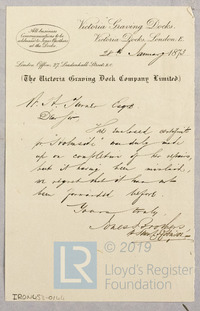 All business
Communications to be
addressed to Jones Brothers
at the Docks
Victoria Graving Docks,
Victoria Docks, London. E.
20th January 1873
London Office, 27 Leadenhall Street E.C.
(The Victoria Graving Dock Company Limited)
Dear Sir
The enclosed certificate
for " was duly made
up on completion of the repairs,
but it having been mislaid,
we regret that it has not
been forwarded before.
Yours truly,
Jones Brothers
© 2019
LR
Lloyd's Register
Foundation